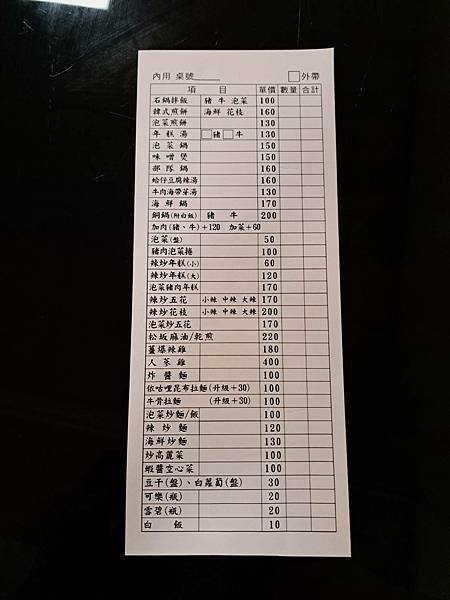 內用 桌號_____ □外帶
項 目 單價 數量 合計
石鍋拌飯 豬 牛 泡菜 100
韓式煎餅 海鮮 花枝 160
泡菜煎餅 130
年糕湯 □豬□牛 130
泡菜鍋 150
味噌煲 150
部隊鍋 160
蛤仔豆腐辣湯 160
牛肉海帶芽湯 130
海鮮鍋 170
銅鍋(附白飯) 豬 牛 200
加肉(豬、牛)+120 加菜+60
泡菜(盤) 50
豬肉泡菜捲 100
辣炒年糕(小) 60
辣炒年糕(大) 120
泡菜豬肉年糕 170
辣炒五花 小辣 中辣 大辣 170
辣炒花枝 小辣 中辣 大辣 200
泡菜炒五花 170
松坂麻油/乾煎 220
薑爆辣雞 180
人蔘雞 400
炸醬麵 100
依咕哩昆布拉麵(升級+30) 100
牛骨拉麵 (升級+30) 100
泡菜炒麵/飯 100
辣炒麵 120
海鮮炒麵 130
炒高麗菜 100
蝦醬空心菜 100
豆干(盤)、白蘿蔔(盤) 30
可樂(瓶) 20
雪碧(瓶) 20
白飯 10